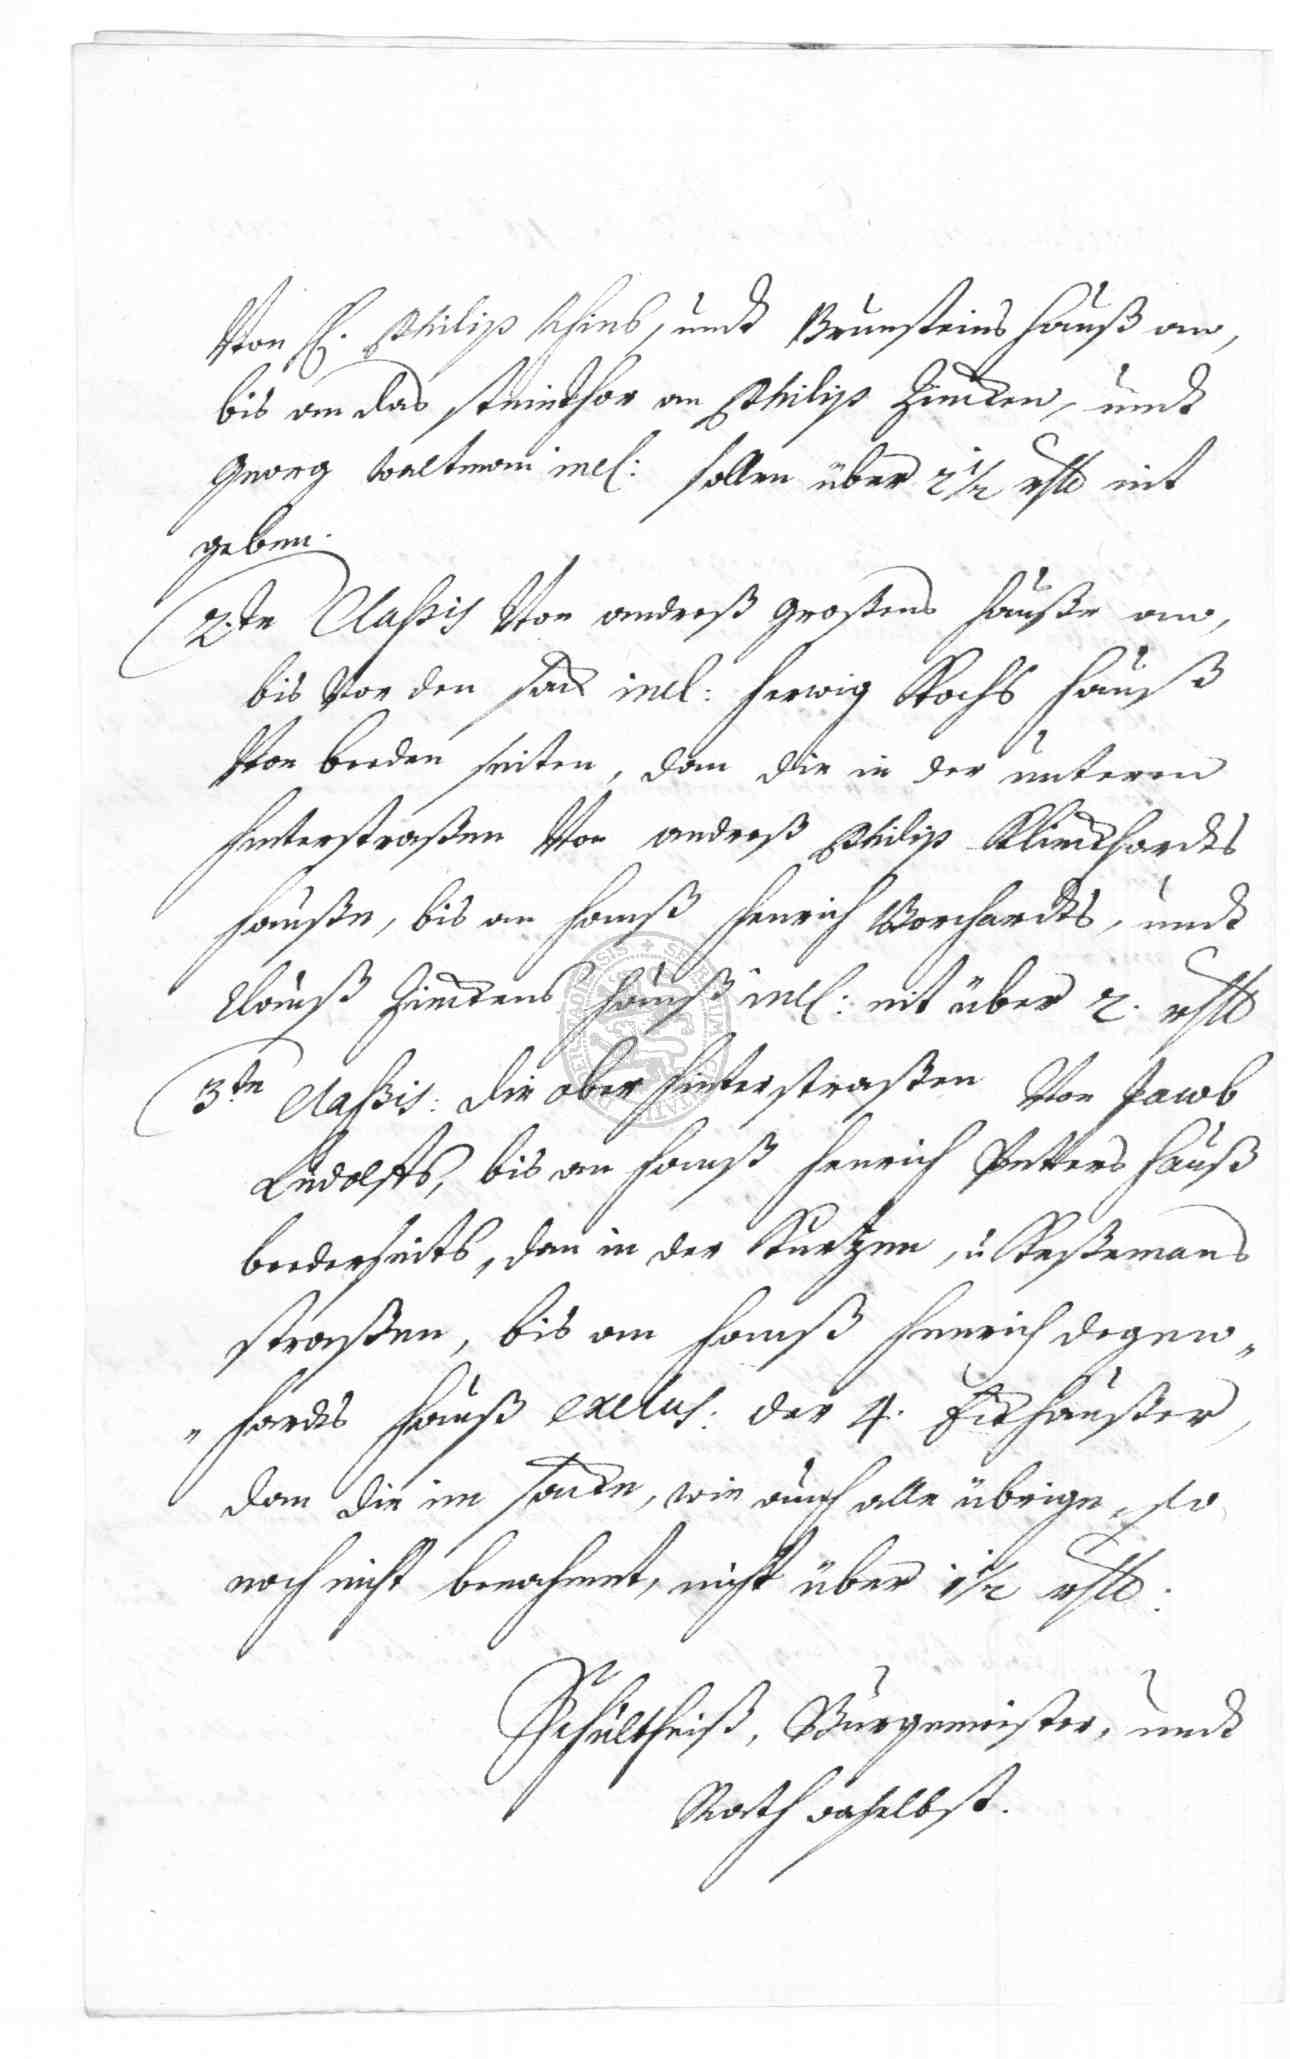 Von H. Philip Thiels, undt Brunsteins Hauß an,
bis an das steinthor an Philip Zincken, undt
Georg Waltman incl: sollen über 2 1/2 rthlr nit
geben.
2.te Classis Von andreß Großens Hauße an,
bis Vor den sack incl: Herwig Kochs Hauß
Von beeden seiten, dan die in der unteren
hinterstraßen Von andreß Philip Klinckhardts
Hauße, bis an Hanß Henrich Borchardts, undt
Clauß Zinckens Hauß incl: nit über 2. rthlr
3.te Classis: die ober hinterstraßen Von Jacob
Ludolffs, bis an Hanß Henrich Petters Hauß
beederseits, dan in der Kurtzen, u. Keßemans
straßen, bis an Hanß Henrich Degen„
„hardts Hauß exclus: der 4. Eckhaußer,
dan die im sacke, wie auch alle übrige, so
noch nicht benahmt, nicht über 1 1/2 rthlr:
Schultheiß, Burgemeister, undt
Rath daselbst.
SIGILLUM